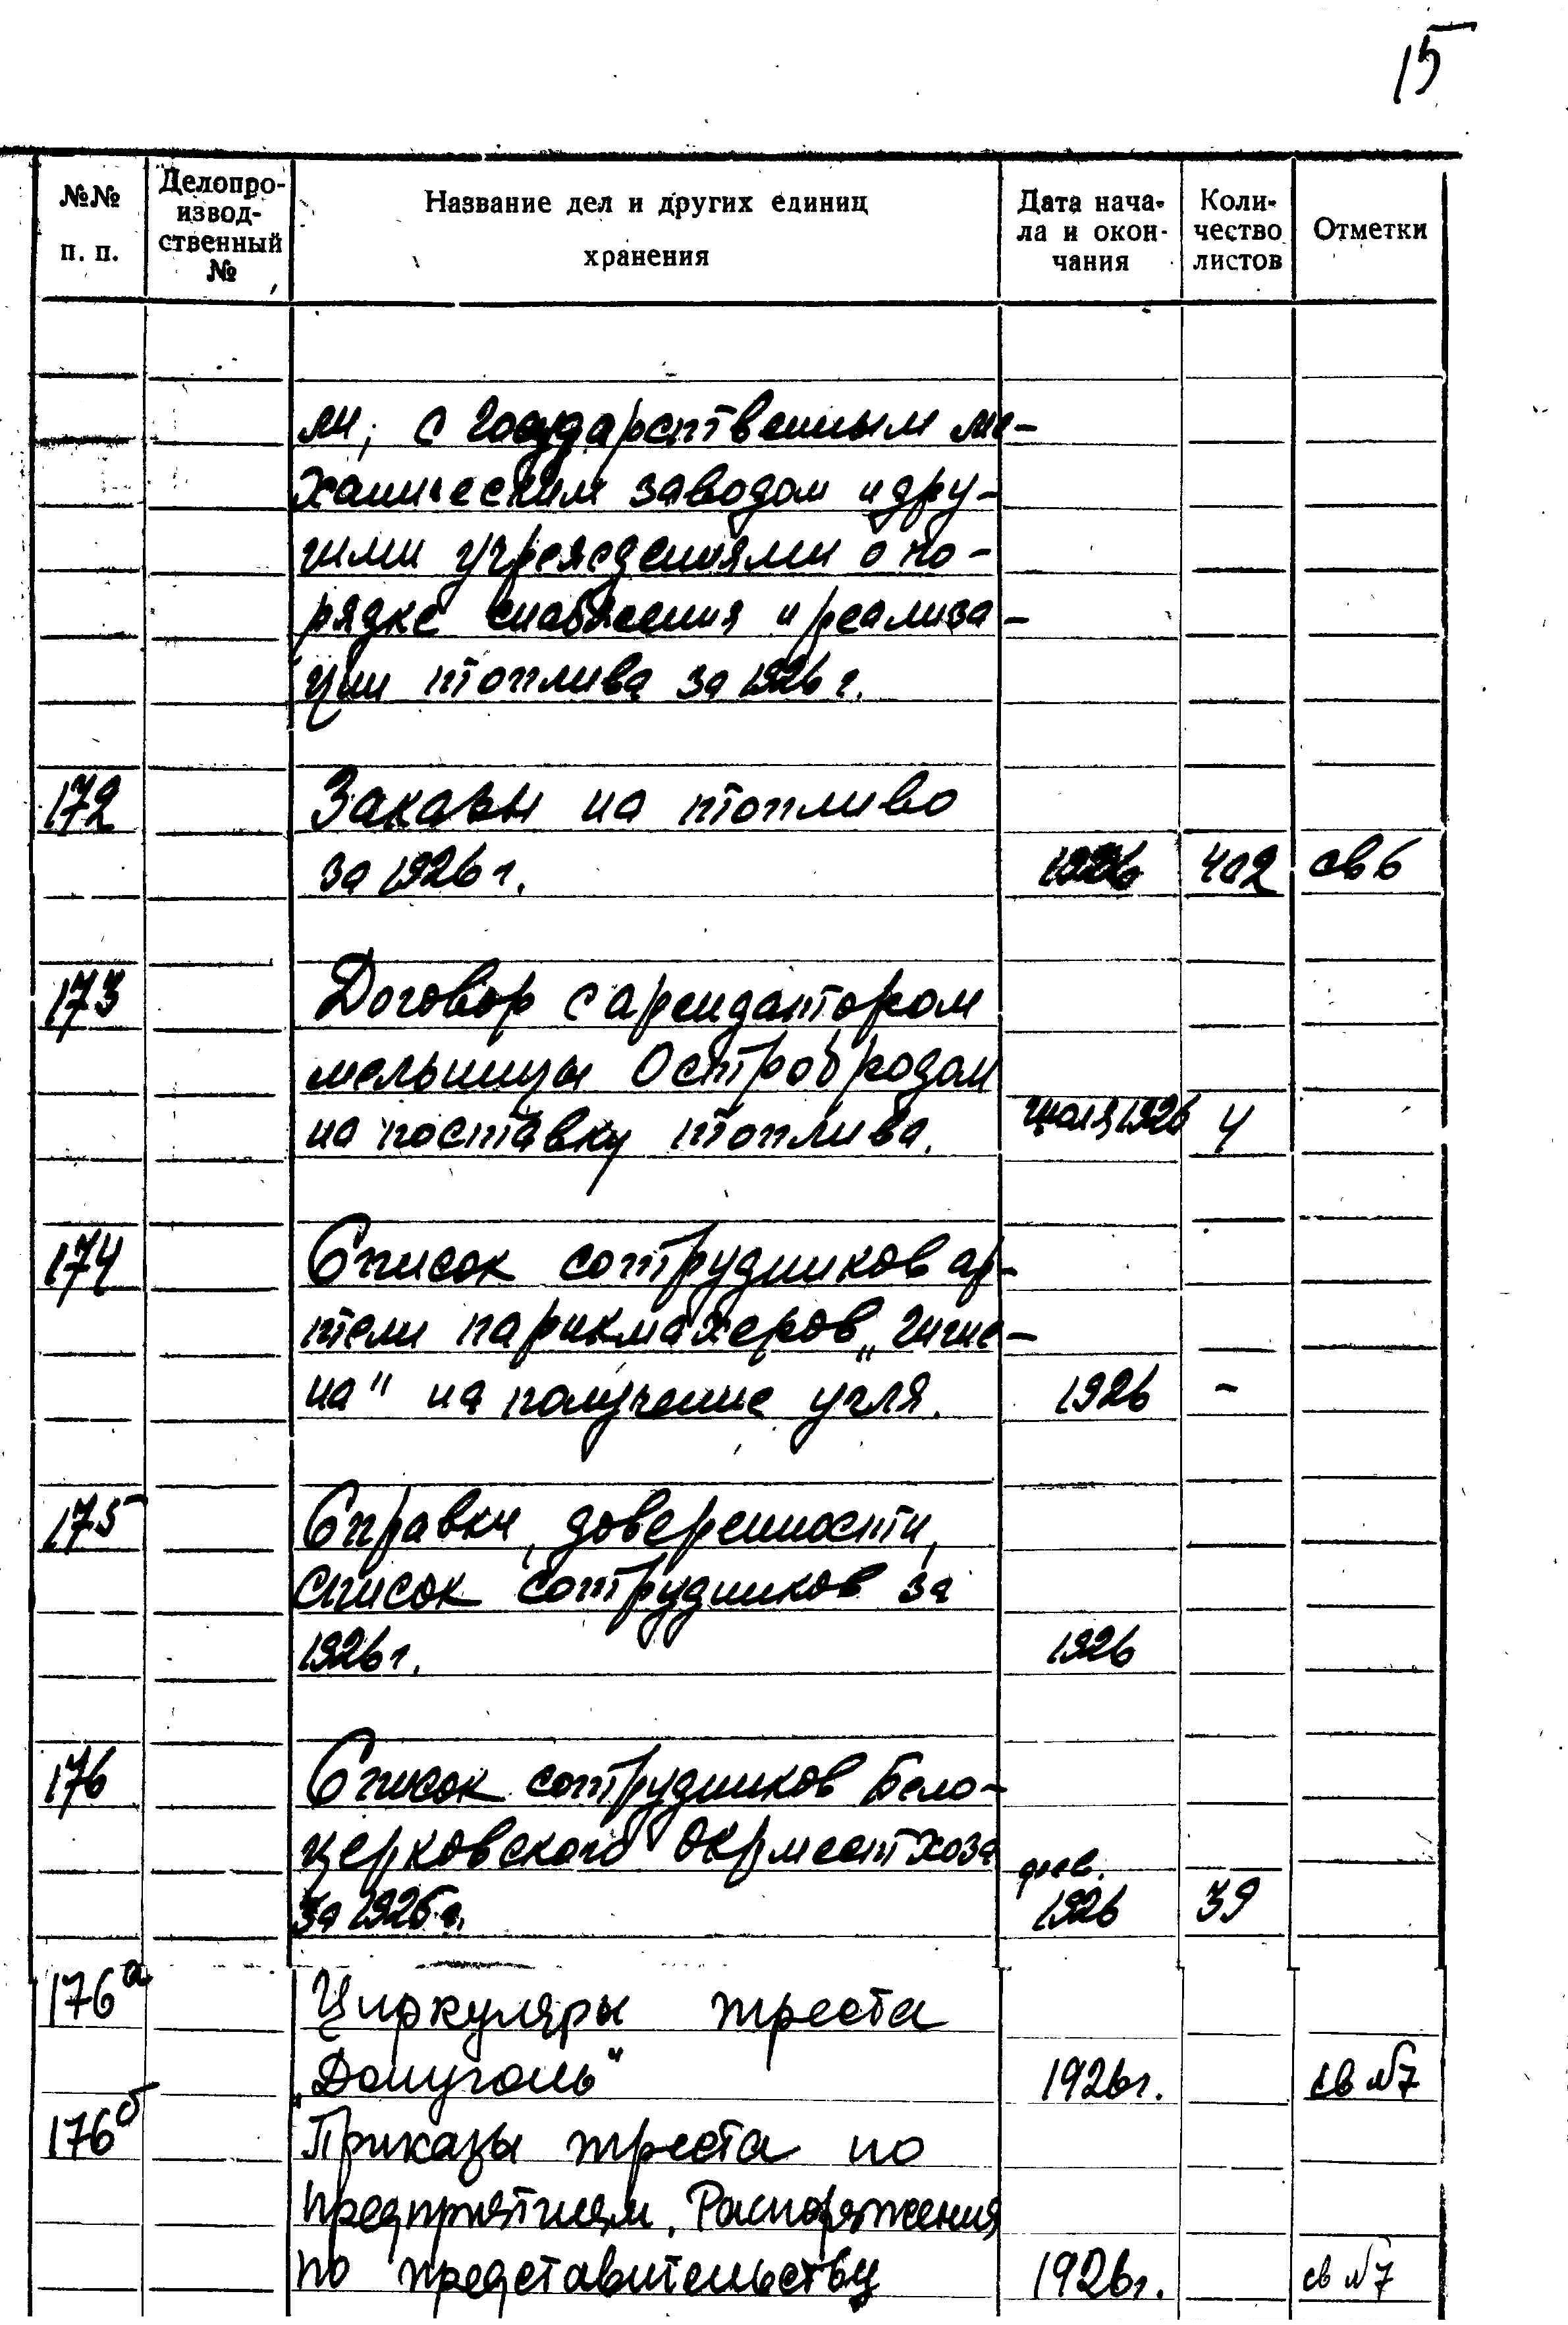 15
№№ п. п.
Делопро-
извод-
ственный
№
Название дел и других единиц
хранения
Дата нача-
ла и окон-
чания
Коли-
чество
листов
Отметки
ми, с государственным ме-
ханическим заводом и дру-
гими учреждениями о по-
рядке снабжения и реализа-
ции топлива за 1926 г.
172 Заказы на топливо
за 1926 г. 1926 402 св 6
173 Договор с арендатором
мельницы Остробродом
на поставку топлива. июля 1926 4
174 Список сотрудников ар-
тели парикмахеров „Гигие-
на" на получение угля. 1926 -
175 Справки, доверенности,
список сотрудников за
1926 г. 1926
176 Список сотрудников Бело-
церковского Окрместхоза
за 1926 г. 1926 39
176а Циркуляры треста
„Донуголь" 1926 г. св №7
176б Приказы треста по
предприятиям. Распоряжения
по представительству 1926 г. св №7